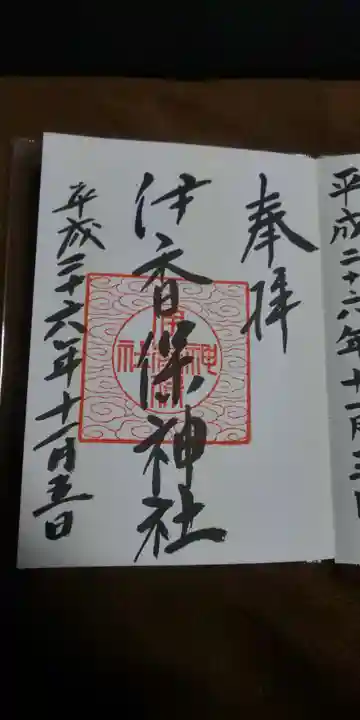 平成二十六年十一月三日
奉拝
伊香保神社
平成二十六年十一月五日